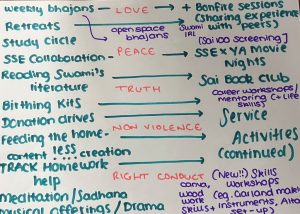 weekly bhajans → LOVE → + Bonfire sessions
Retreats open space bhajans Swami IRL (Sharing experiences with "peers")
Study Circle [Sai 100 screening]
SSE Collaboration → PEACE → SSE x YA Movie Nights
Reading Swami's literature → TRUTH → Sai Book Club
Birthing Kits Career workshops/ mentoring (+ Life skills)
Donation drives → NON VIOLENCE → Service
Feeding the homeless Activities
content creation (continued)
TRACK Homework help → RIGHT CONDUCT → (New!!) Skills workshops
Meditation/Sadhana wood work (eg. Garland making
musical offerings/Drama skills + instruments,